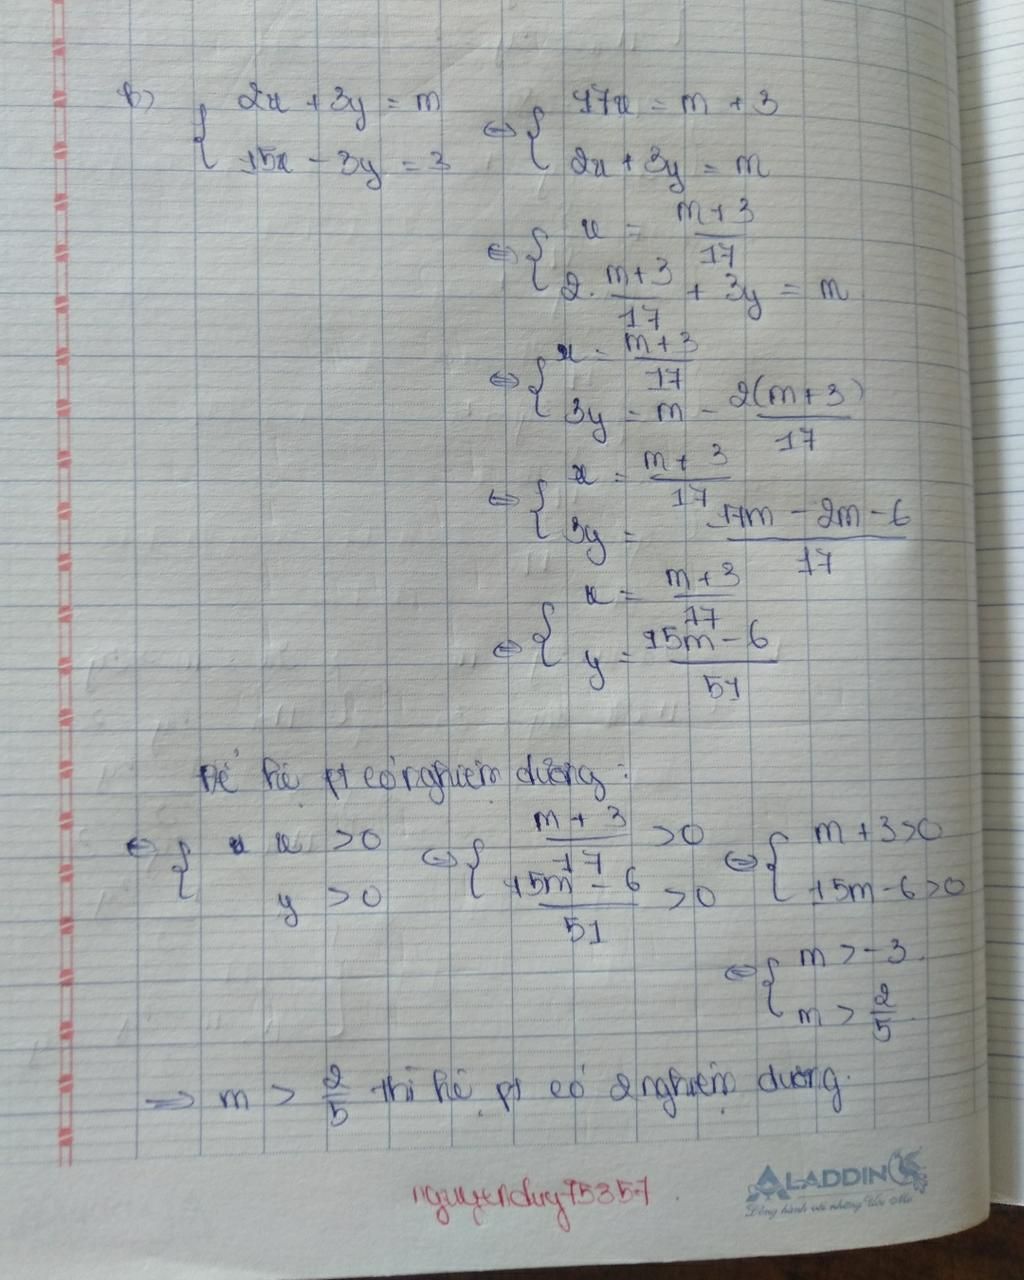 b) { 2x + 3y = m ⇔ { 17x = m + 3
15x - 3y = 3 2x + 3y = m
⇔ { x = m+3/17
2. m+3/17 + 3y = m
⇔ { x = m+3/17
3y = m - 2(m+3)/17
⇔ { x = m+3/17
3y = 17m - 2m - 6/17
⇔ { x = m+3/17
y = 15m - 6/51
Để hệ pt có nghiệm dương :
⇔ { x > 0 ⇔ { m+3/17 > 0 ⇔ { m + 3 > 0
y > 0 15m - 6/51 > 0 15m - 6 > 0
⇔ { m > -3
m > 2/5
=> m > 2/5 thì hệ pt có 2 nghiệm dương.
nguyenduy75357
ALADDIN
Đồng hành với những Ước Mơ